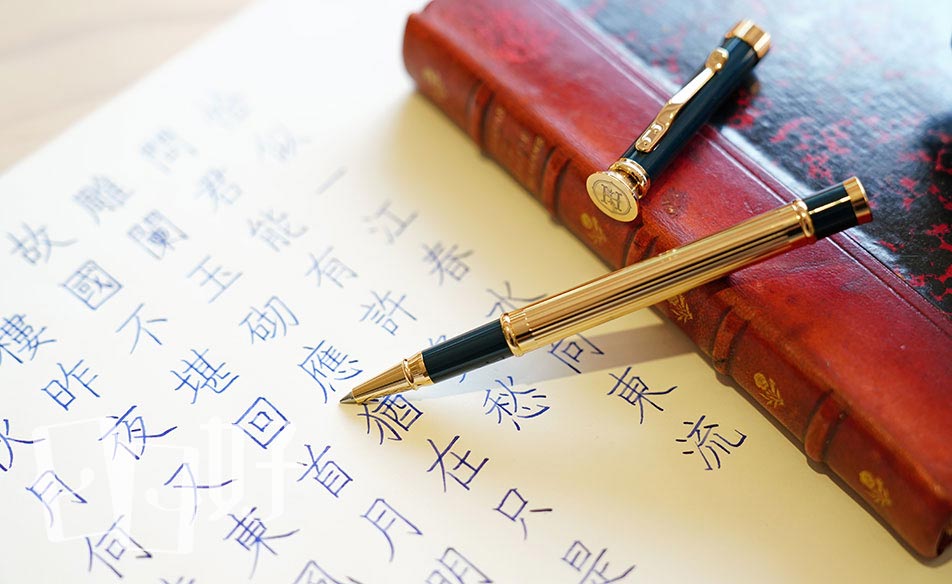 月何
樓昨夜又東風
故國不堪回首月明
雕闌玉砌應猶在只是
問君能有許愁
恰似一江春水向東流